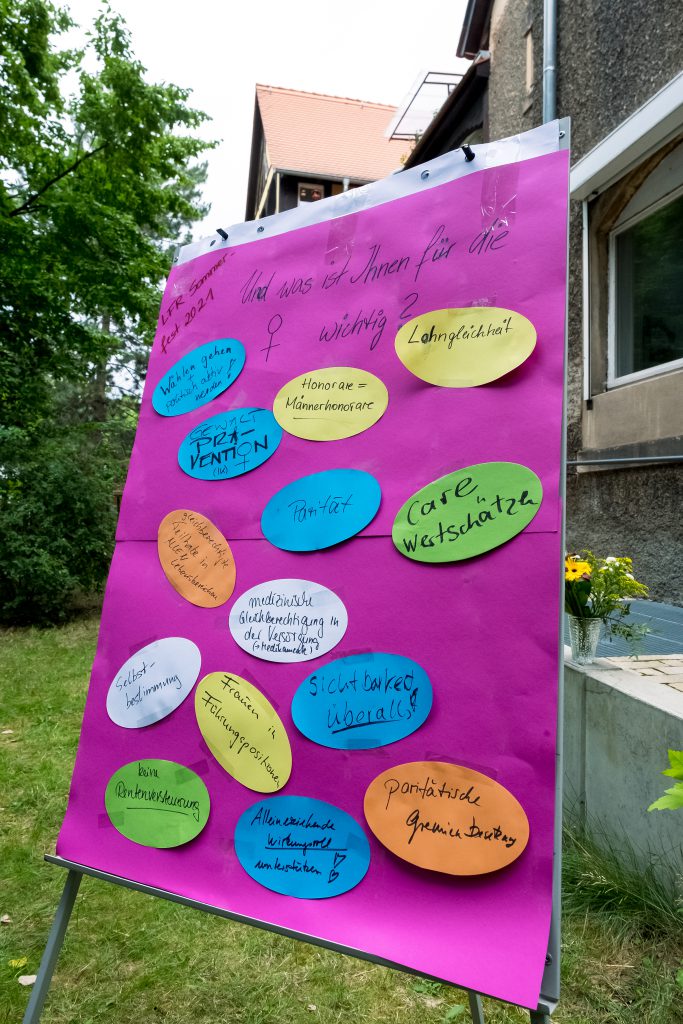 LFR Sommer-
fest 2021
Und was ist Ihnen für die
♀ wichtig?
Lohngleichheit
Wählen gehen
politisch aktiv
werden!
Honorare =
Männerhonorare
GEWALT
PRÄ-
VENTION
(IK)
Parität
Care
Wertschätzen
gleichberechtigte
Teilhabe in
ALLEN
Lebensbereichen
medizinische
Gleichberechtigung in
der Versorgung
(+Medikamente)
Selbst-
bestimmung
Frauen in
Führungspositionen
Sichtbarkeit
überall!
keine
Rentenversteuerung
Alleinerziehende
wirkungsvoll
unterstützen!
paritätische
Gremien Besetzung